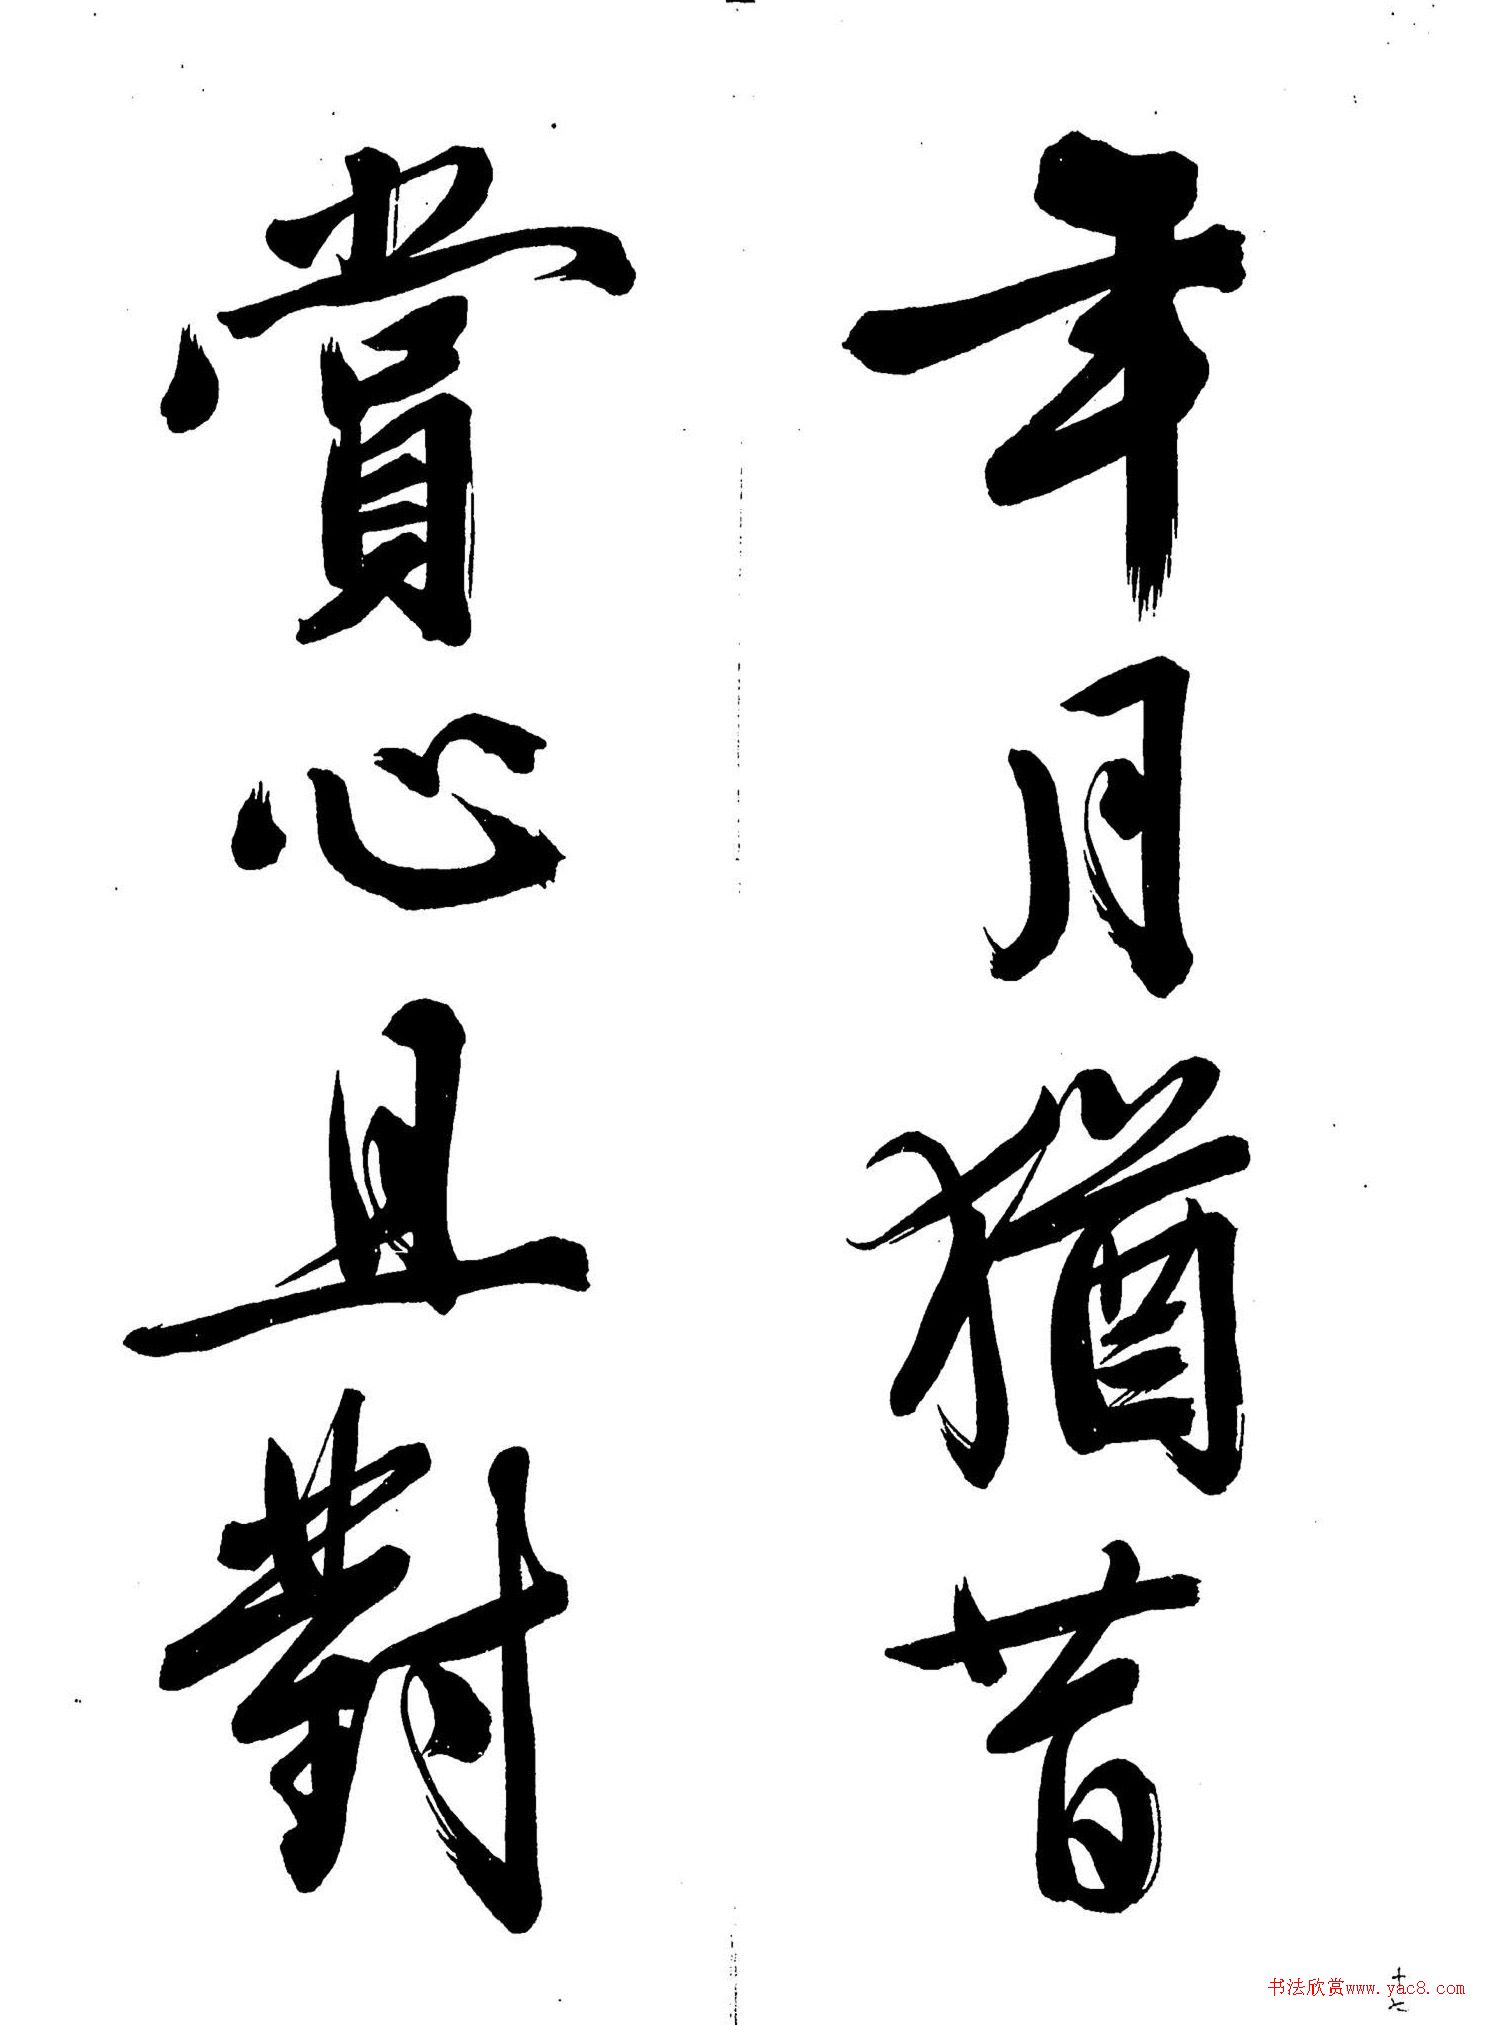 年月猶昔
賞心且對
十七
书法欣赏www.yac8.com